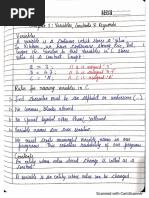 Chapter 1: Variables, Constants & Keywords
Variables
A variable is a container which stores a value.
In Kitchen, we have containers storing Rice, Dal,
Sugar etc. Similar to that Variables in C Stores
value of a Constant. Example:
a = 3;
b = 4.7;
c = 'A';
Rules for naming variables in C
1- First Character must be an alphabet or underscore (_)
2- No Commas, blanks allowed.
3- No Special Symbol other than (_) allowed
4- Variable names are case Sensitive
We must Create meaningful variable names in our
programs. This enhances readability of our
programs.
Constants
An entity whose value doesnt Change is called as a
Constant.
Scanned with CamScanner